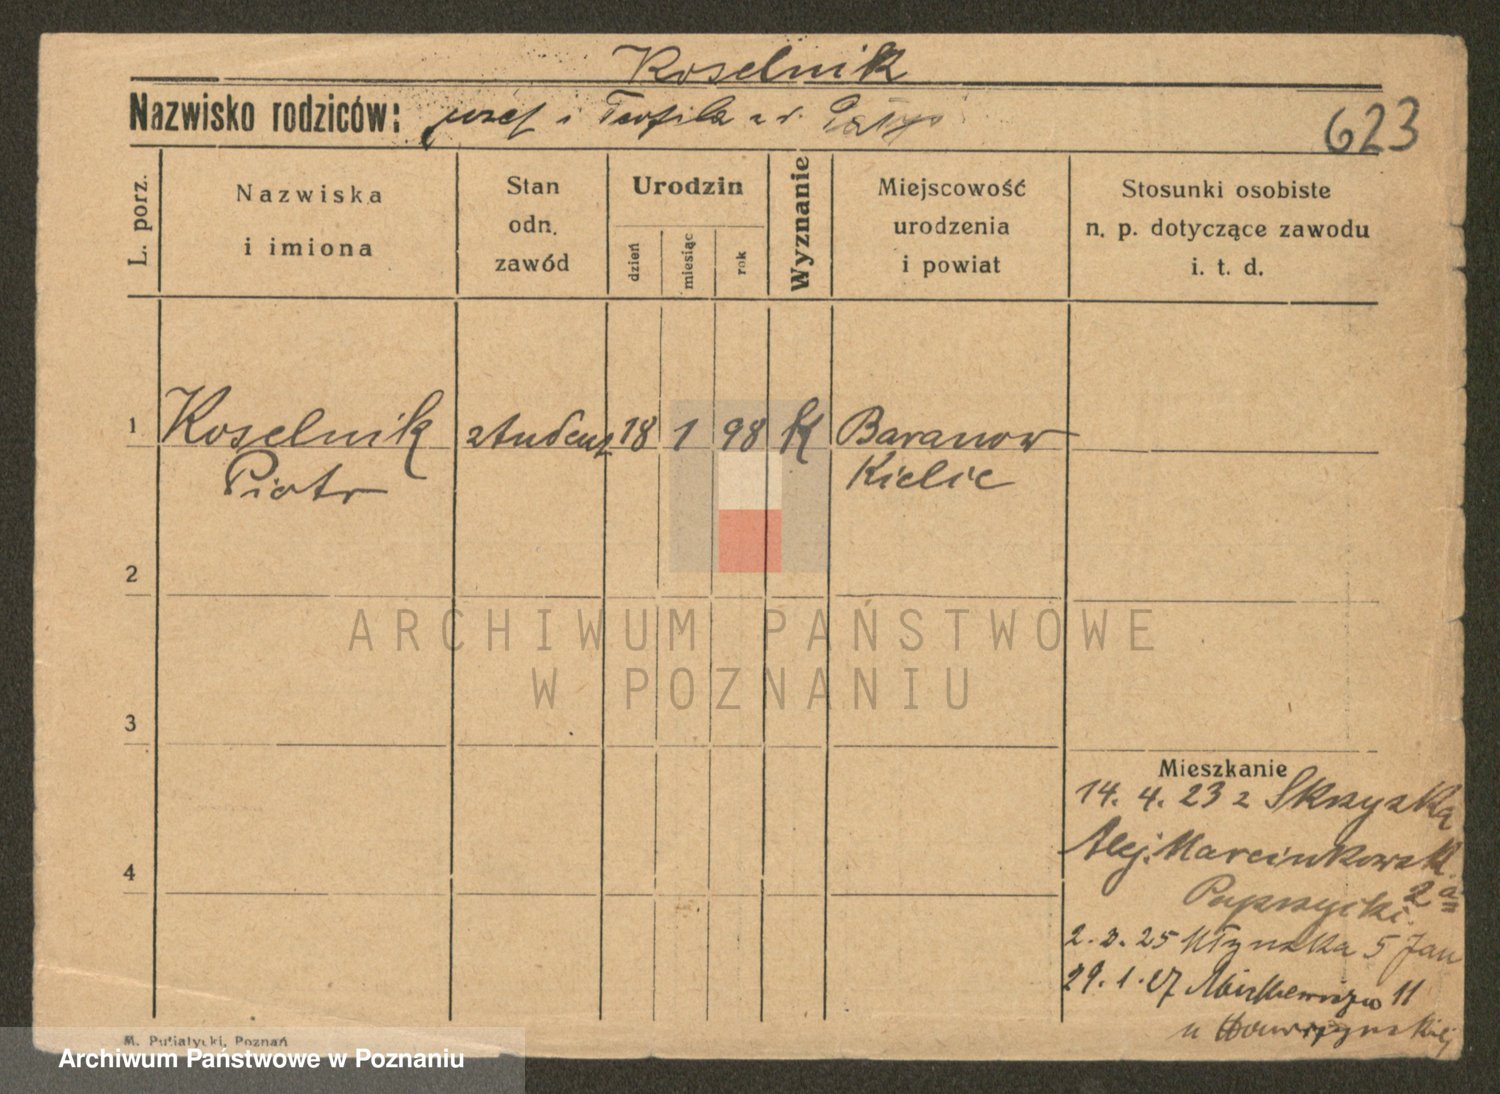 Koselnik
Nazwisko rodziców: Józef i Teofila z d.
623
L. porz.
Nazwiska
i imiona
Stan
odn.
zawód
Urodzin
dzień
miesiąc
rok
Wyznanie
Miejscowość
urodzenia
i powiat
Stosunki osobiste
n. p. dotyczące zawodu
i. t. d.
1 Koselnik student 18 1 98 K Baranow
Piotr Kielic
2
ARCHIWUM PAŃSTWOWE
W POZNANIU
3
Mieszkanie
14. 4. 23 z
Alej. Marcinkowsk.
Paprzycki 2a
4
2. 3. 25 Młynska 5 Jan
29. 1. 27 11
u
M. Putiatycki, Poznań
Archiwum Państwowe w Poznaniu